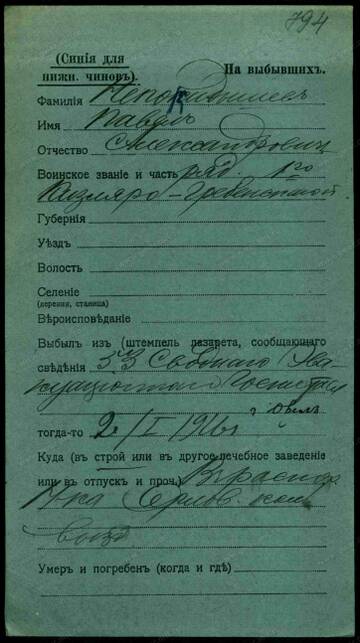 794
(Синія для
нижн. чиновъ).
На выбывшихъ.
Фамилія
Имя Павелъ
Отчество Александрович
Воинское званіе и часть ряд. 1го
Кизляро-Гребенской
Губернія
Уѣздъ
Волость
Селеніе
(деревня, станица)
Вѣроисповѣданіе
Выбылъ изъ (штемпель лазарета, сообщающаго
свѣдѣнія 53 Сводного Эва
куационного Госпиталя
тогда-то 2/I 1916 г
Куда (въ строй или въ другое лечебное заведеніе
или въ отпускъ и проч.) В распор
Умеръ и погребенъ (когда и гдѣ)